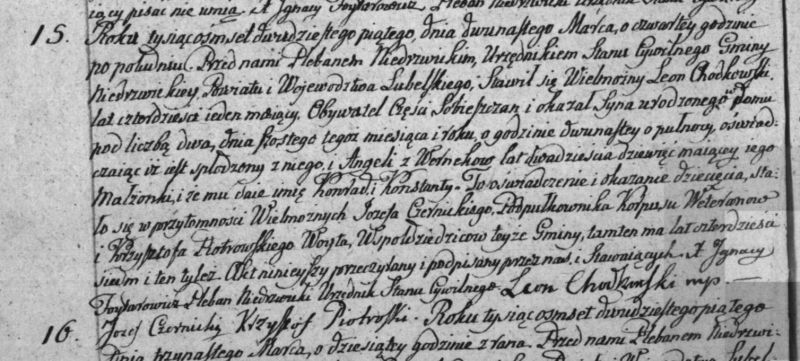 iący pisać nie umią. X Ignacy Foytarowicz Pleban Niedrzwicki
15. Roku tysiącosmset dwudziestego piątego, dnia dwunastego Marca, o czwartey godzinie
po południu. Przed nami Plebanem Niedrzwickim, Urzędnikiem Stanu Cywilnego Gminy
Niedrzwickiey, Powiatu i Województwa Lubelskiego, Stawił się Wielmożny Leon Chodkowski,
lat czterdzieści ieden maiący, Obywatel Części Sobieszczan, i okazał Syna urodzonego w domu
pod liczbą dwa, dnia szostego tegoż miesiąca i roku, o godzinie dwunastey o pułnocy, oświad-
czaiąc iż iest spłodzony z niego, i Angeli z lat dwadzieścia dziewięć maiącey iego
Małżonki, i że mu daie imię Konrad i Konstanty. To oświadczenie i okazanie dziecięcia, sta-
ło się w przytomności Wielmożnych Jozefa Czernickiego, Podpułkownika Korpusu Weteranow
i Krzysztofa Piotrowskiego Woyta, Wspołdziedziców teyże Gminy, tamten ma lat czterdzieści
siedm i ten tyleż. Akt ninieyszy przeczytany i podpisany przez nas, i Stawaiących. X Ignacy
Foytarowicz Pleban Niedrzwicki Urzędnik Stanu Cywilnego. Leon Chodkowski mp
Jozef Czernicki Krzysztof Piotroski.
16. Roku tysiącosmset dwudziestego piątego
Dnia trzynastego Marca, o dziesiątey godzinie z rana. Przed nami Plebanem Niedrzwi-